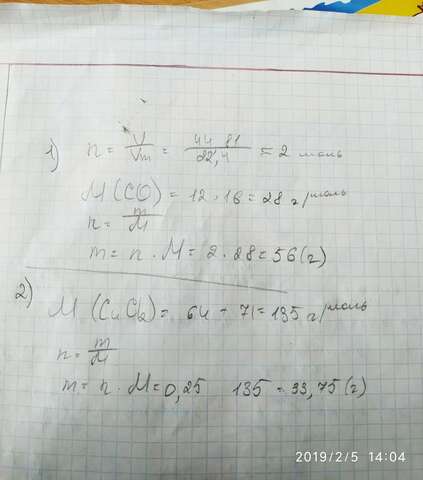 1) n = V/Vm = 44,81/22,4 = 2 моль
M(CO) = 12 + 16 = 28 г/моль
n = m/M
m = n · M = 2 · 28 = 56 (г)
2) M (CuCl2) = 64 + 71 = 135 г/моль
n = m/M
m = n · M = 0,25 135 = 33,75 (г)
2019/2/5 14:04